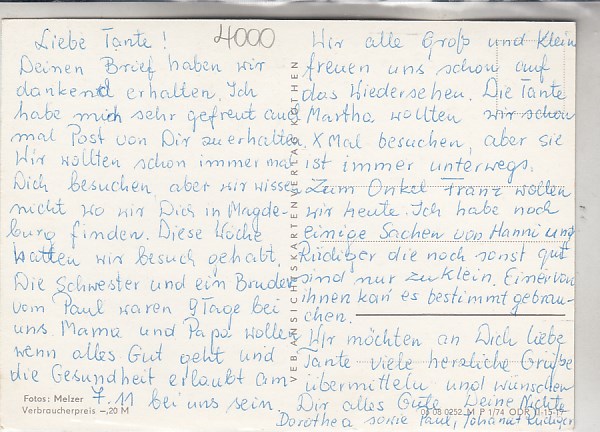 4000
Liebe Tante!
Deinen Brief haben wir
dankend erhalten. Ich
habe mich sehr gefreut auch
mal Post von Dir zu erhalten.
Wir wollten schon immer mal
Dich besuchen, aber wir wissen
nicht wo wir Dich in Magde-
burg finden. Diese Woche
hatten wir besuch gehabt.
Die Schwester und ein Bruder
vom Paul waren 9 Tage bei
uns. Mama und Papa wollen
wenn alles Gut geht und
die Gesundheit erlaubt am
7.11 bei uns sein.
Fotos: Melzer
Verbraucherpreis -,20 M
VEB ANSICHTSKARTENVERLAG KÖTHEN
Wir alle Groß und Klein
freuen uns schon auf
das Wiedersehen. Die Tante
Martha wollten wir schon
X Mal besuchen, aber sie
ist immer unterwegs.
Zum Onkel Franz wollen
wir heute. Ich habe noch
einige Sachen von Hanni und
Rüdiger die noch sonst gut
sind nur zu klein. Einer von
ihnen kan es bestimmt gebrau-
chen.
Wir möchten an Dich liebe
Tante viele herzliche Grüße
übermitteln und wünschen
Dir alles Gute. Deine Nichte
Dorothea sowie Paul, Johanna Rüdiger
03 08 0252 M P 1/74 DDR